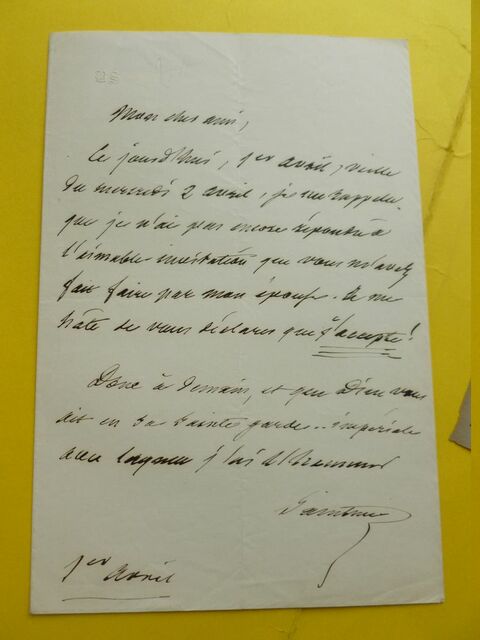 Mon cher ami,
Ce jourd'hui, 1er avril, veille
du mercredi 2 avril, je me rappelle
que je n'ai pas encore répondu à
l'aimable invitation que vous m'avez
fait faire par mon épouse. Je me
hâte de vous déclarer que j'accepte!
Donc à demain, et que Dieu vous
ait en sa sainte garde.. impériale
avec j'ai l'honneur
1er avril